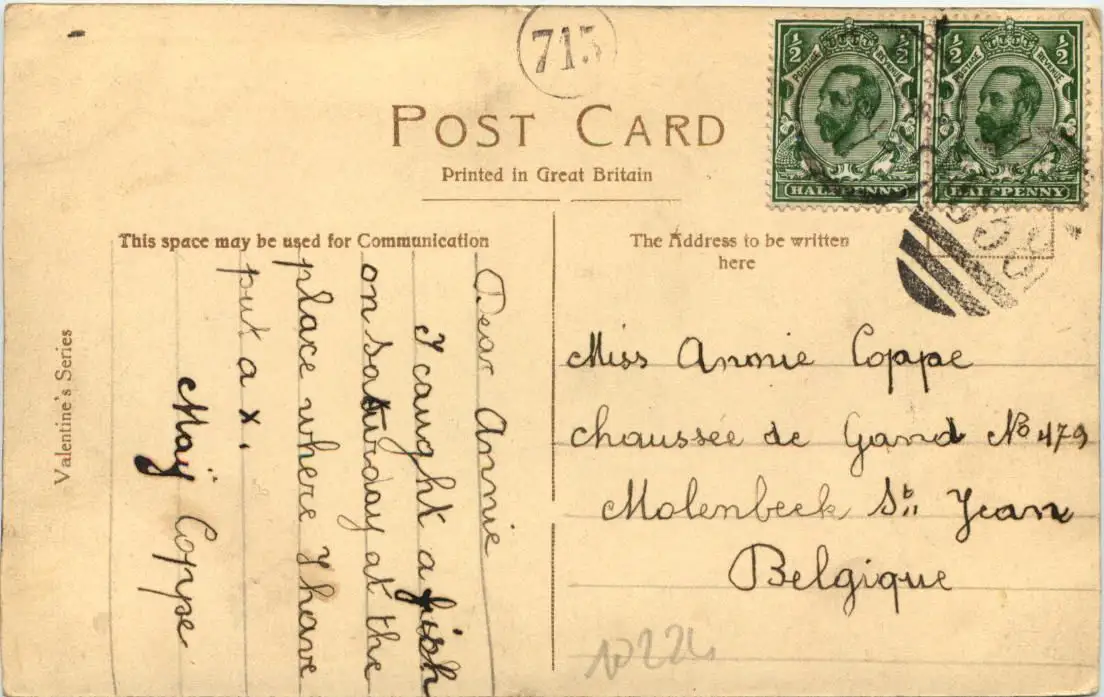 715
POST CARD
Printed in Great Britain
½ ½
POSTAGE REVENUE
HALFPENNY
½ ½
POSTAGE REVENUE
HALFPENNY
This space may be used for Communication
Dear Annie
I caught a fish
on saturday at the
place where I have
put a x.
Maij Coppe
Valentine's Series
The Address to be written
here
Miss Annie Coppe
chaussée de Gand No 479
Molenbeek St. Jean
Belgique